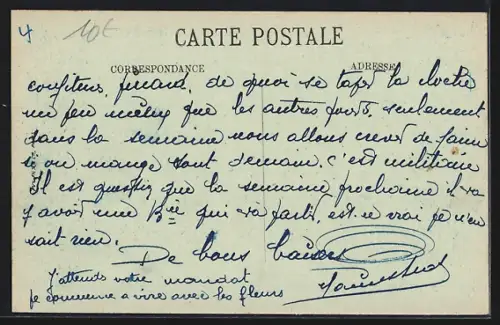 4 10€
CARTE POSTALE
CORRESPONDANCE ADRESSE
confiture, pinard, de quoi se taper la cloche
un peu mieux que les autres jours, seulement
dans la semaine nous allons crever de faim
si on mange tout demain. c'est militaire
Il est question que la semaine prochaine il va
y avoir une Bie qui va partir, est-ce vrai je n'en
sait rien.
De bons baisers
J'attends votre mandat
je commence a vivre avec les fleurs